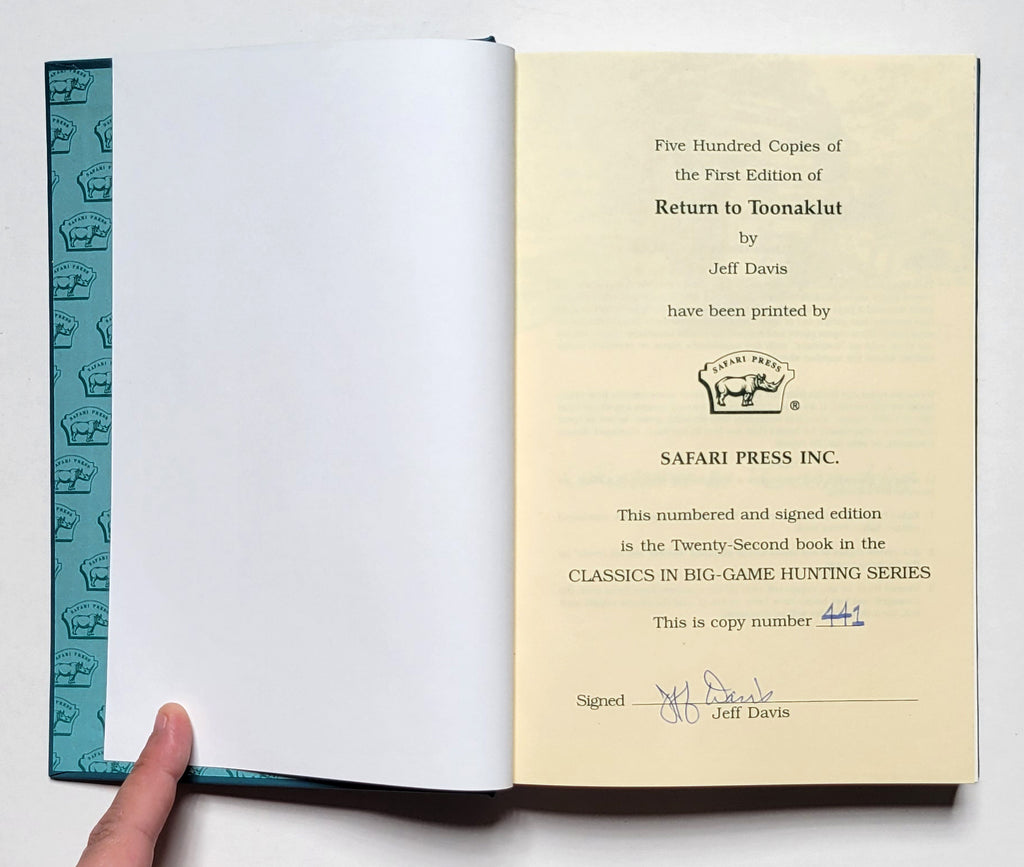 Five Hundred Copies of
the First Edition of
Return to Toonaklut
by
Jeff Davis
have been printed by
SAFARI PRESS
®
SAFARI PRESS INC.
This numbered and signed edition
is the Twenty-Second book in the
CLASSICS IN BIG-GAME HUNTING SERIES
This is copy number 441
Signed Jeff Davis
Jeff Davis